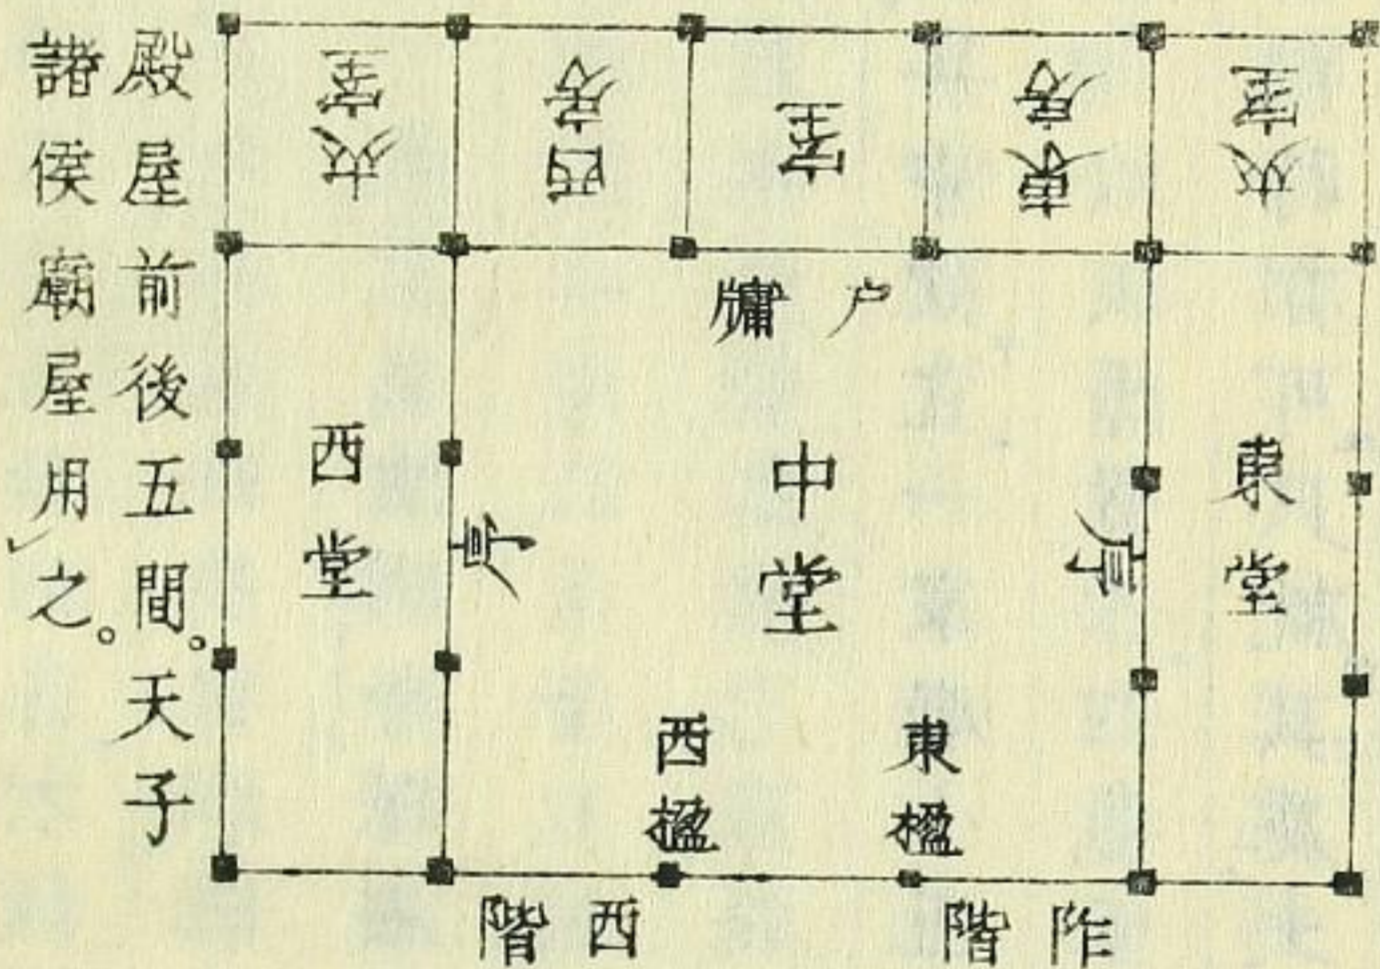 夾室
東房
室
西房
夾室
户
牖
東堂
序
中堂
序
西堂
東楹
西楹
阼階
西階
殿屋前後五間。天子
諸侯廟屋用之。